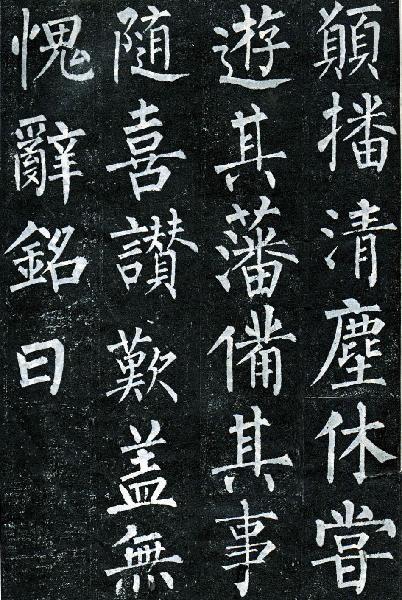 顗播清塵休甞
遊其藩備其事
隨喜讃歎盖無
愧辭銘曰